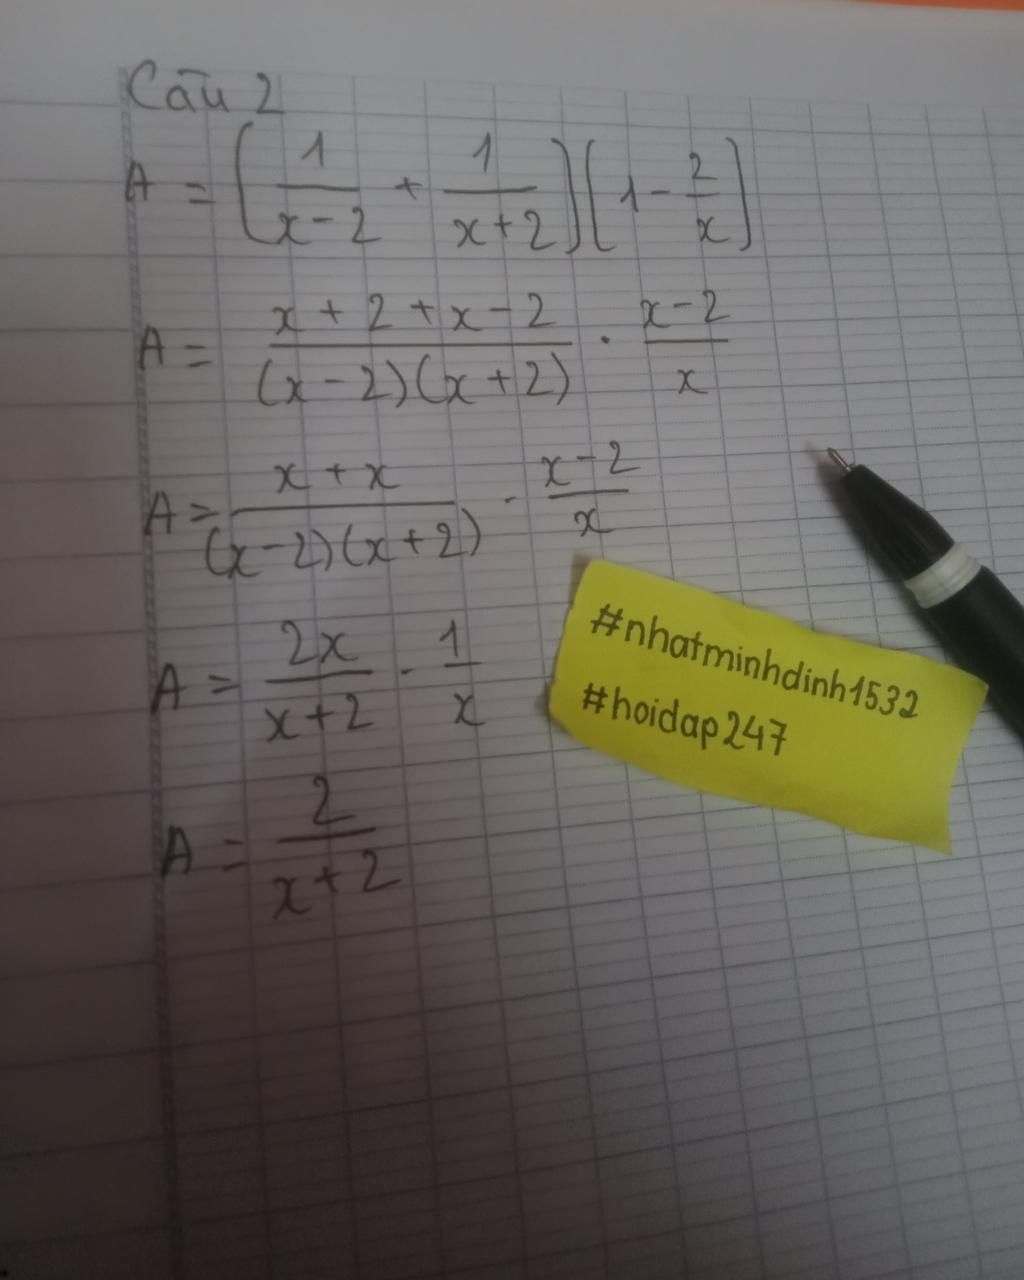 Câu 2
A = (1/(x-2) + 1/(x+2))(1 - 2/x)
A = (x+2+x-2)/((x-2)(x+2)) · (x-2)/x
A = (x+x)/((x-2)(x+2)) · (x-2)/x
A = 2x/(x+2) · 1/x
A = 2/(x+2)
#nhatminhdinh1532
#hoidap247